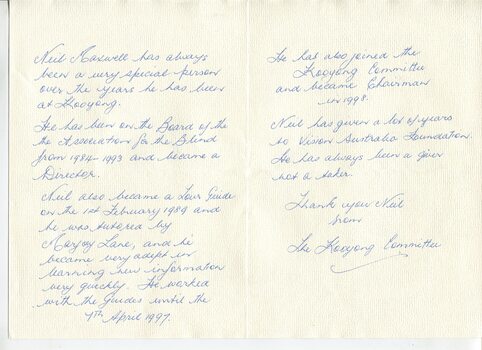 Neil Maxwell has always
been a very special person
over the years he has been
at Kooyong.
He has been on the Board of the
the Association for the Blind
from 1984-1993 and became a
Director.
Neil also became a Tour Guide
on the 1st February 1989 and
he was tutored by
Marjory Lane, and he
became very adept in
learning new information
very quickly. He worked
with the Guides until the
7th April 1997.
He has also joined the
Kooyong Committee
and became Chairman
in 1998.
Neil has given a lot of years
to Vision Australia Foundation.
He has always been a giver
not a taker.
Thank you Neil
from
The Kooyong Committee